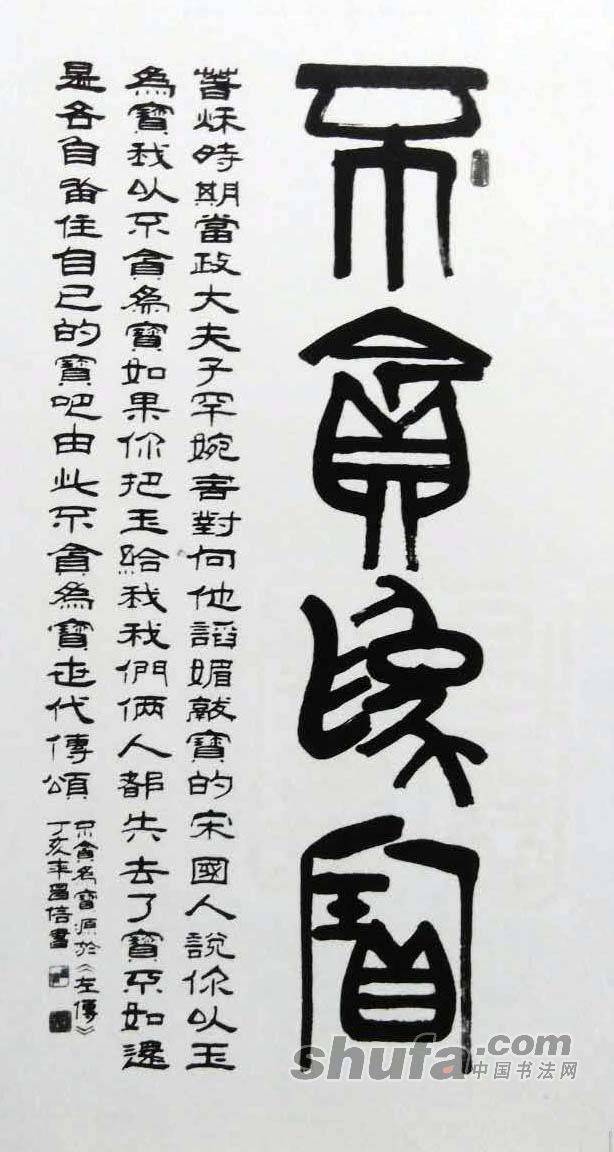 不貪為寶
春秋時期當政大夫子罕婉言對向他諂媚獻寶的宋國人說你以玉
為寶我以不貪為寶如果你把玉給我我們倆人都失去了寶不如還
是各自留住自己的寶吧由此不貪為寶世代傳頌
不貪為寶源於《左傳》
丁亥年 書
shufa.com
中国书法网